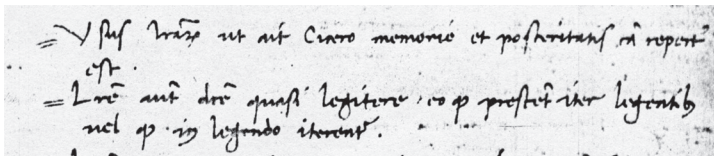 Vsus lrarꝝ ut ait Cicero memorie et posteritatis cā repert᾽
est.
Lrē aūt dcē quasi legitere. eo ꝙ prestēt iter legentibꝫ
uel ꝙ in legendo iterent᾽.